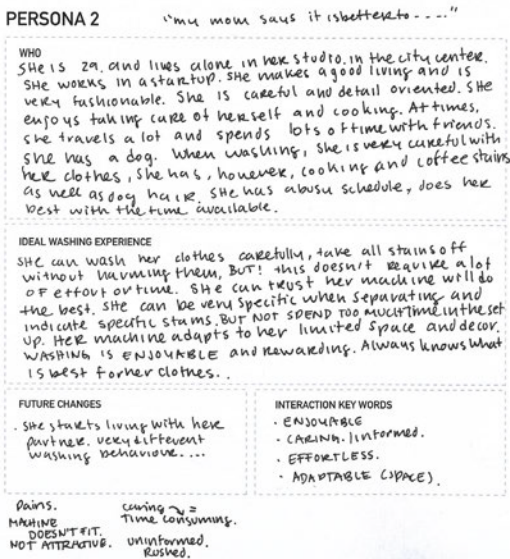 PERSONA 2
"my mom says it is better to ----"
WHO
SHe is 29. and lives alone in her studio. in the city center.
SHe works in a startup. SHe makes a good living and is
very fashionable. She is careful and detail oriented. SHe
enjoys taking care of herself and cooking. At times,
she travels a lot and spends lots of time with friends.
she has a dog. When washing, she is very careful with
her clothes, she has, however, cooking and coffee stains
as well as dog hair. SHe has a busy schedule, does her
best with the time available.
IDEAL WASHING EXPERIENCE
SHe can wash her clothes carefully, take all stains off
without harming them, BUT! this doesn't require a lot
OF effort or time. SHe can trust her machine will do
the best. SHe can be very specific when separating and
indicate specific stains. BUT NOT SPEND TOO MUCH TIME in the set
up. Her machine adapts to her limited space and decor.
WASHING IS ENJOYABLE and Rewarding. Always knows what
is best for her clothes..
FUTURE CHANGES
. SHe starts living with her
partner. very different
washing behaviour....
INTERACTION KEY WORDS
· ENJOYABLE
· CARING./informed.
· EFFORTLESS.
· ADAPTABLE (SPACE).
Pains.
MACHINE
DOESN'T FIT.
NOT ATTRACTIVE.
caring =
Time consuming.
uninformed.
Rushed.